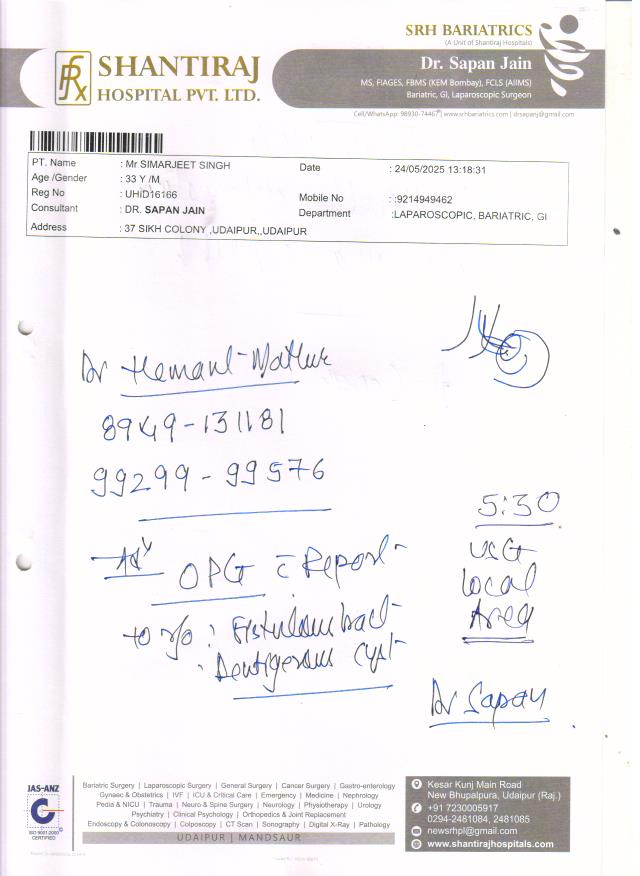 SRH BARIATRICS
(A Unit of Shantiraj Hospitals)
SHANTIRAJ
HOSPITAL PVT. LTD.
Dr. Sapan Jain
MS, FIAGES, FBMS (KEM Bombay), FCLS (AIIMS)
Bariatric, GI, Laparoscopic Surgeon
Cell/WhatsApp: 98930-74467 | www.srhbariatrics.com | drsapanj@gmail.com
PT. Name : Mr SIMARJEET SINGH Date : 24/05/2025 13:18:31
Age /Gender : 33 Y /M
Reg No : UHID16166 Mobile No : :9214949462
Consultant : DR. SAPAN JAIN Department :LAPAROSCOPIC, BARIATRIC, GI
Address : 37 SIKH COLONY ,UDAIPUR,,UDAIPUR
Dr Hemant Mathur
8949-131181
99299-99576
Adv OPG c̄ Report
to r/o : Fistulous tract
: Dentigerous Cyst
5:30
USG
Local
Area
Dr Sapan
JAS-ANZ
ISO 9001:2000
CERTIFIED
Bariatric Surgery | Laparoscopic Surgery | General Surgery | Cancer Surgery | Gastro-enterology
Gynaec & Obstetrics | IVF | ICU & Critical Care | Emergency | Medicine | Nephrology
Pedia & NICU | Trauma | Neuro & Spine Surgery | Neurology | Physiotherapy | Urology
Psychiatry | Clinical Psychology | Orthopedics & Joint Replacement
Endoscopy & Colonoscopy | Colposcopy | CT Scan | Sonography | Digital X-Ray | Pathology
UDAIPUR | MANDSAUR
Kesar Kunj Main Road
New Bhupalpura, Udaipur (Raj.)
+91 7230005917
0294-2481084, 2481085
newsrhpl@gmail.com
www.shantirajhospitals.com